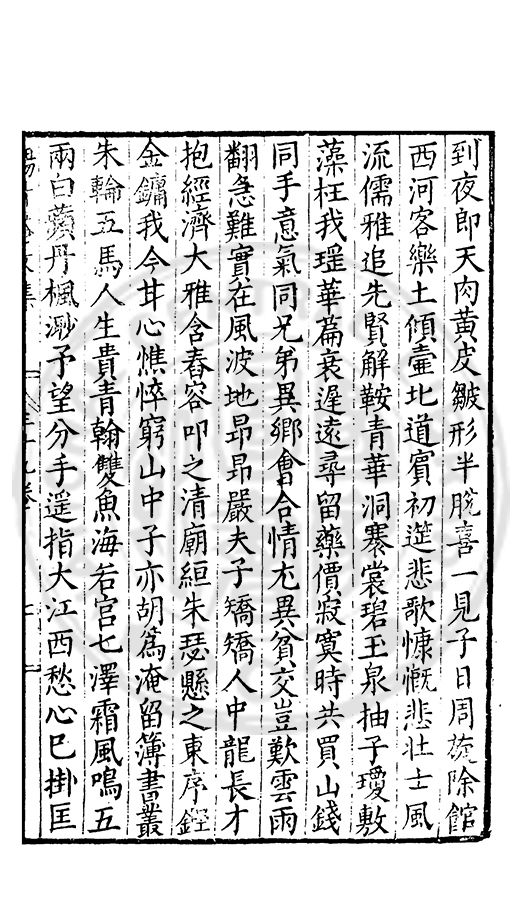 到夜郎天肉黃皮皺形半脫喜一見子日周旋除館
西河客樂土傾壷北道賓初筵悲歌慷慨悲壮士風
流儒雅追先賢解鞍青華洞褰裳碧玉泉抽子瓊敷
藻枉我瑶華篇衰遲遠尋留藥價寂寞時共買山錢
同手意氣同兄弟異鄉會合情尤異貧交豈歎雲雨
翻急難實在風波地昻昻嚴夫子矯矯人中龍長才
抱經濟大雅含舂容叩之清廟絙朱瑟懸之東序鏗
金鏞我今甘心憔悴窮山中子亦胡爲淹留簿書叢
朱輪五馬人生貴青翰雙魚海若宫七澤霜風鳴五
兩白蘋丹楓渺予望分手遥指大江西愁心已掛匡